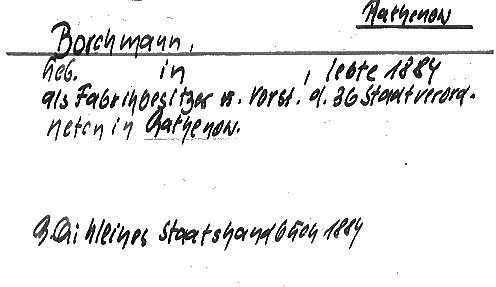 Rathenow
Borchmann,
geb. in , lebte 1884
als Fabrikbesitzer u. Vorst. d. 36 Stadtverord-
neten in Rathenow.
kleines Staatshandbuch 1884